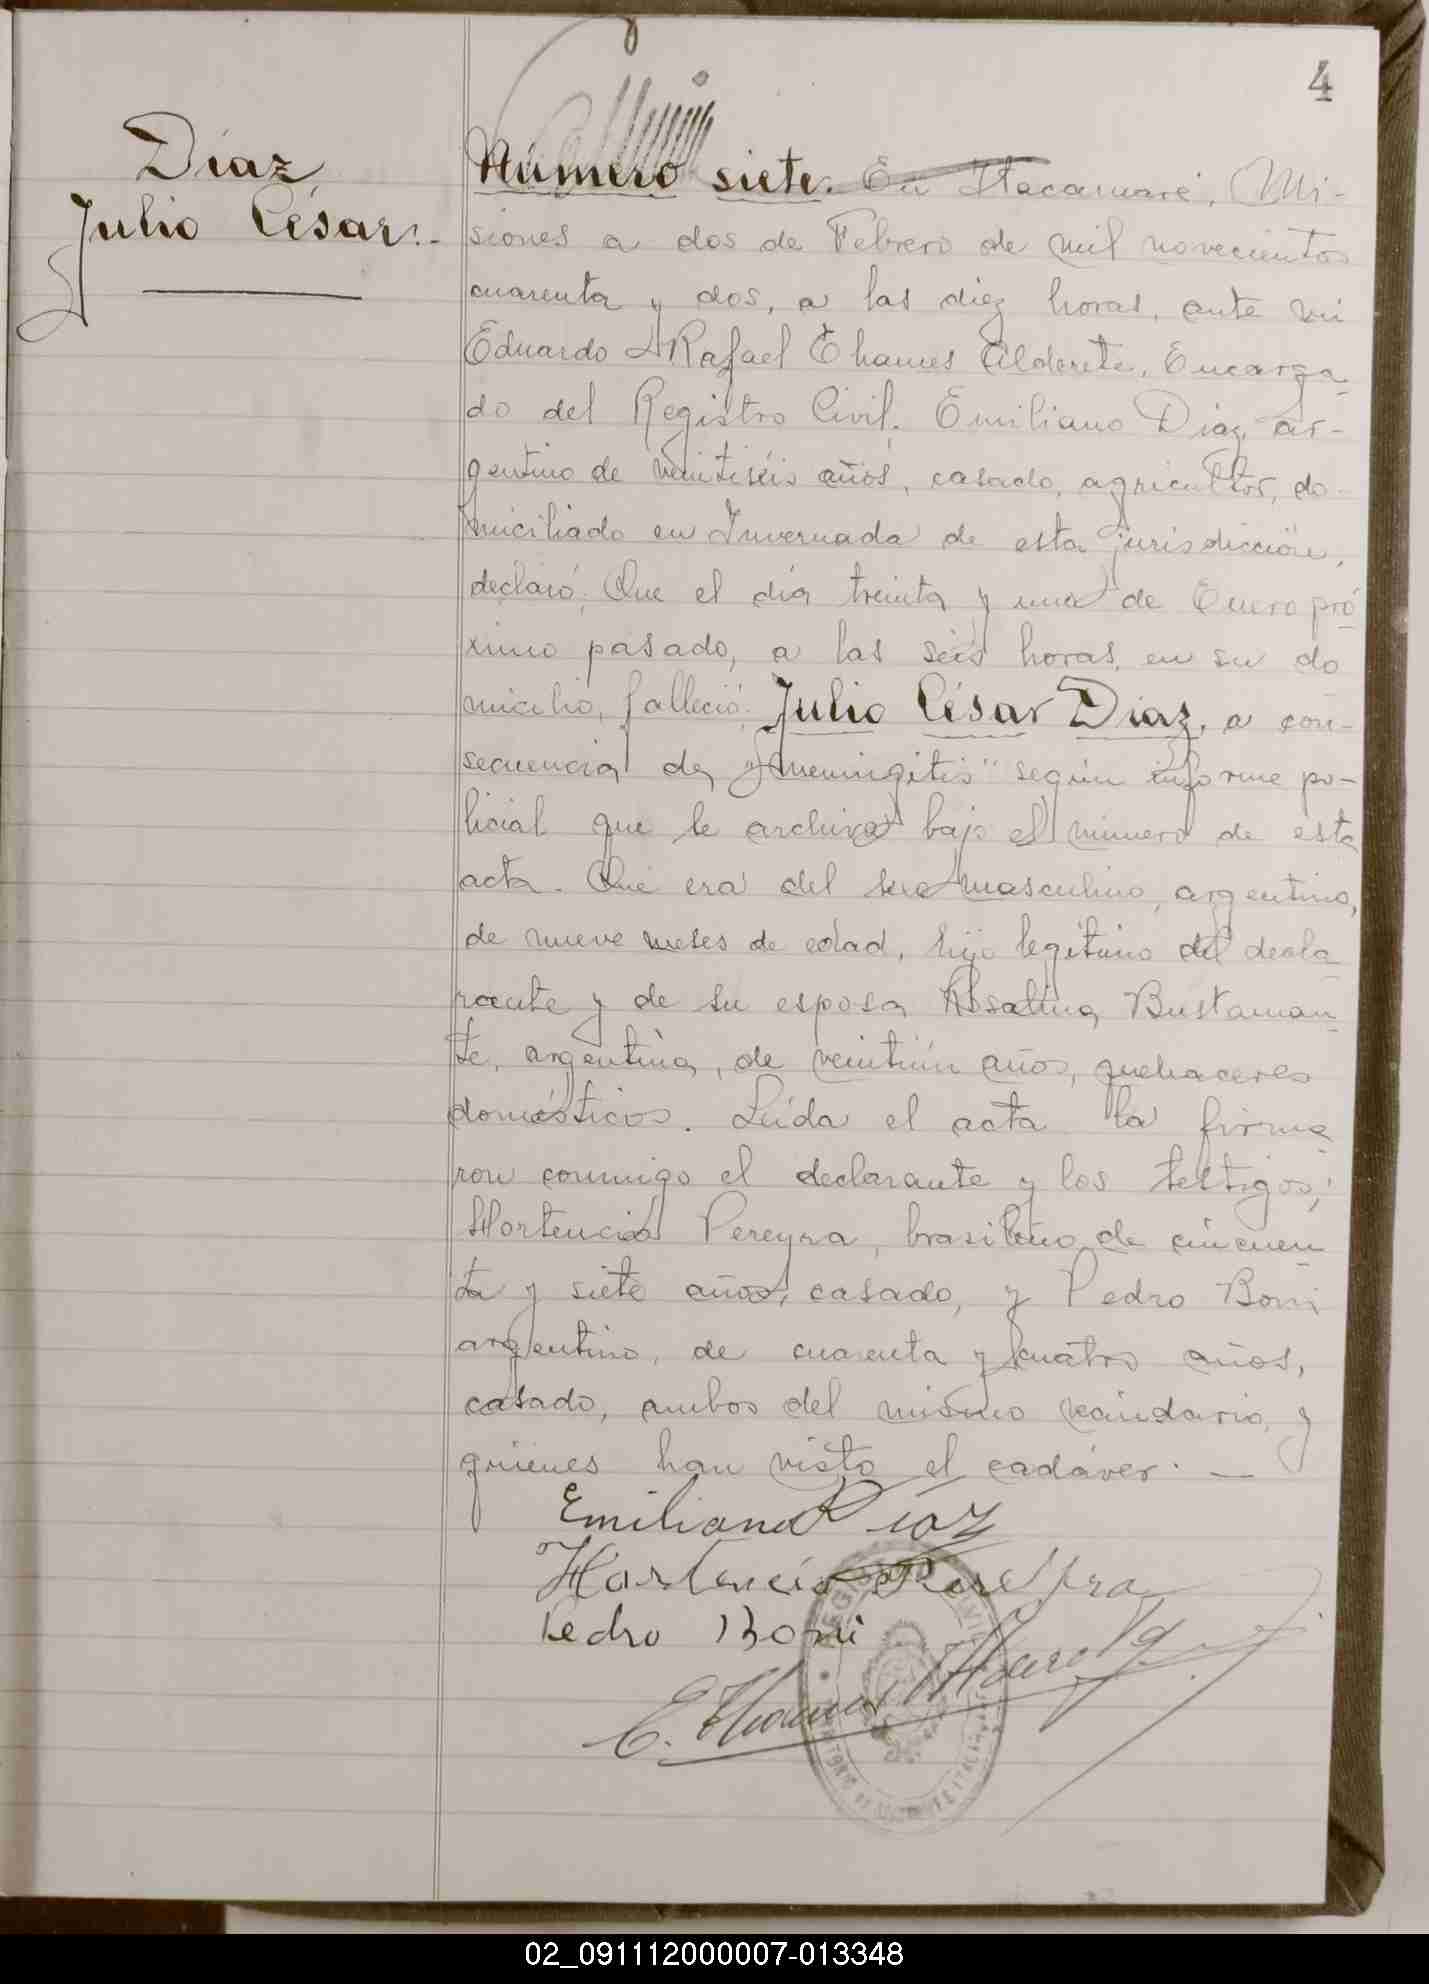 4
Díaz,
Julio César.-
Número siete. En Itacaruaré, Mi-
siones a dos de Febrero de mil novecientos
cuarenta y dos, a las diez horas, ante mi
Eduardo Rafael Thames Alderete, Encarga-
do del Registro Civil, Emiliano Díaz, ar-
gentino de veintiséis años, casado, agricultor, do-
miciliado en Invernada de esta jurisdicción,
declaró: Que el día treinta y uno de Enero pró
ximo pasado, a las seis horas, en su do
micilio, falleció: Julio César Díaz, a con-
secuencia de "meningitis" según informe po-
licial que se archiva bajo el número de esta
acta. Que era del sexo masculino, argentino,
de nueve meses de edad, hijo legítimo del decla
rante y de su esposa Rosalina Bustaman
te, argentina, de veintiún años, quehaceres
domésticos. Leída el acta la firma
ron conmigo el declarante y los testigos;
Hortencio Pereyra, brasileño de cincuen
ta y siete años, casado, y Pedro Boni
argentino, de cuarenta y cuatro años,
casado, ambos del mismo vecindario, y
quienes han visto el cadáver. —
Emiliano Díaz
Hortencio Pereyra
Pedro Boni
E. Thames
02_091112000007-013348